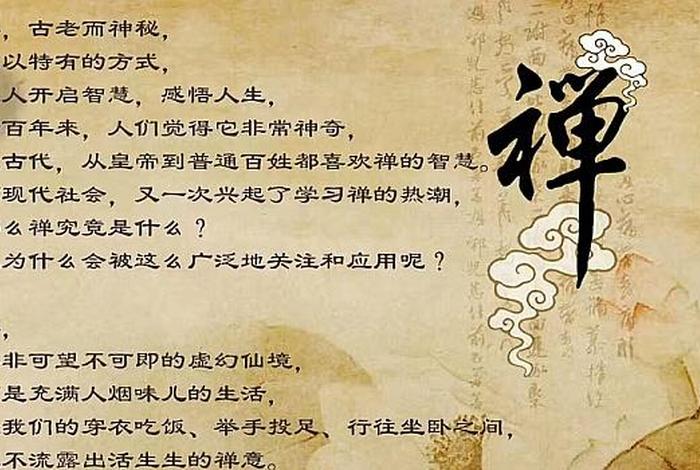 ，古老而神秘，
以特有的方式，
人开启智慧，感悟人生，
百年来，人们觉得它非常神奇，
古代，从皇帝到普通百姓都喜欢禅的智慧。
现代社会，又一次兴起了学习禅的热潮，
么禅究竟是什么？
为什么会被这么广泛地关注和应用呢？
，
非可望不可即的虚幻仙境，
是充满人烟味儿的生活，
我们的穿衣吃饭、举手投足、行往坐卧之间，
不流露出活生生的禅意。
禅